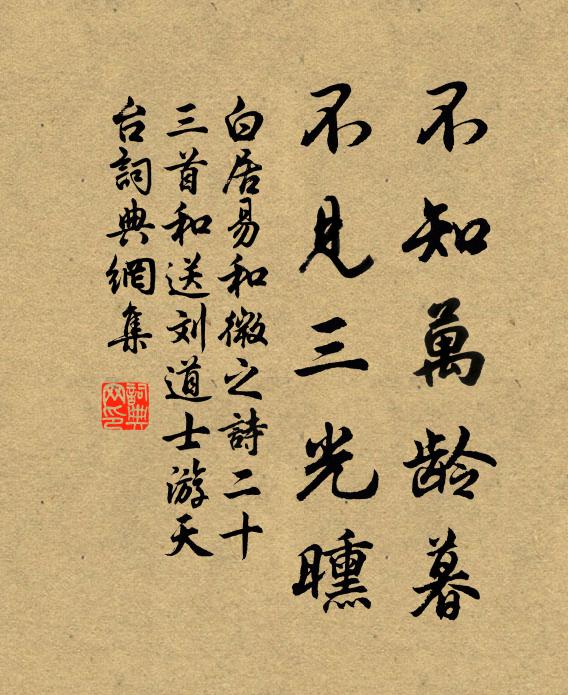 不知萬龄暮
不見三光曛
白居易和微之詩二十
三首和送刘道士游天
台詞典網集
詞典
网印